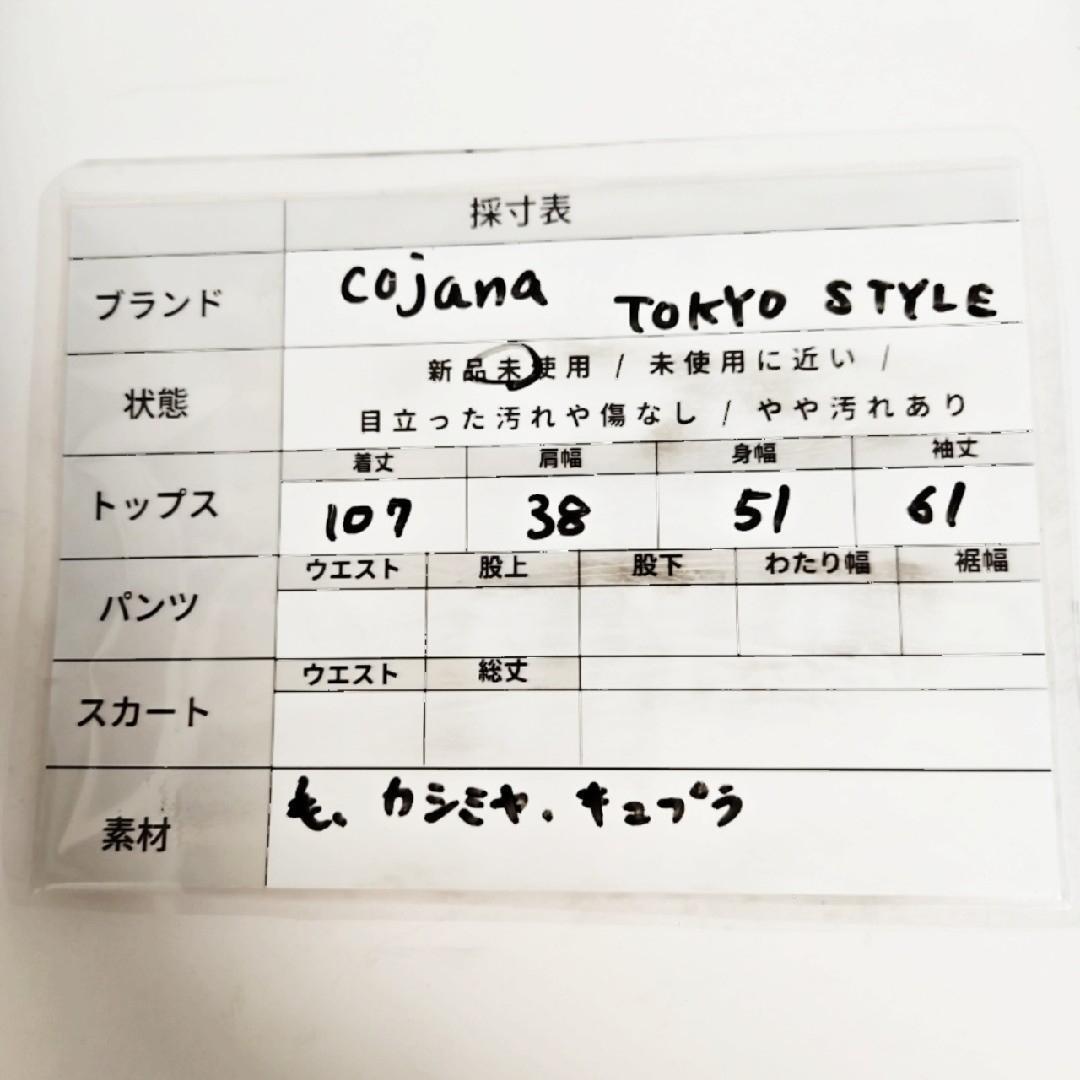 採寸表
ブランド cojana TOKYO STYLE
状態 新品未使用 / 未使用に近い /
目立った汚れや傷なし / やや汚れあり
トップス 着丈 肩幅 身幅 袖丈
107 38 51 61
パンツ ウエスト 股上 股下 わたり幅 裾幅
スカート ウエスト 総丈
素材 毛、カシミヤ、キュプラ